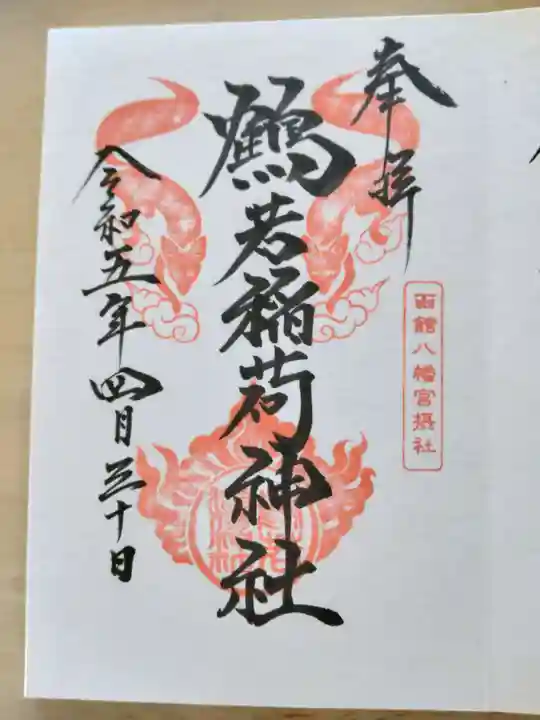 奉拝
函館八幡宮摂社
鶴若稲荷神社
令和五年四月三十日